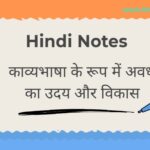 Hindi Notes
काव्यभाषा के रूप में अवध
का उदय और विकास